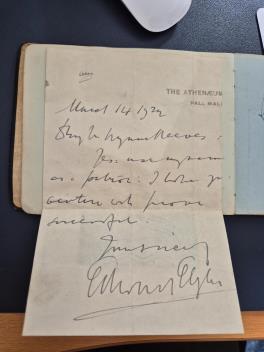 THE ATHENÆUM
PALL MALL
March 14 1924
Yes: use my name
as a patron: I hope yr
venture will prove
successful.
Yours sincerely
Edward Elgar